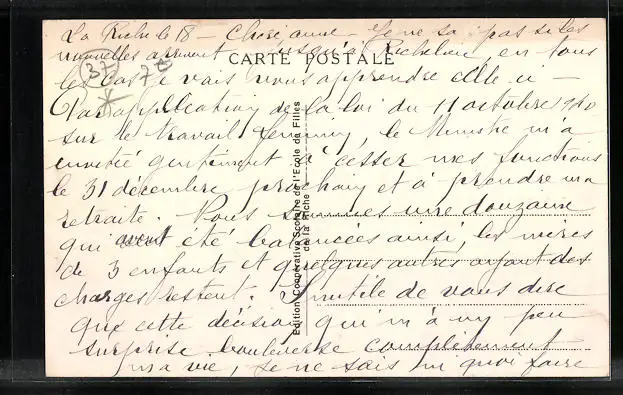 La Riche le 18 - Chère amie - Je ne sais pas si les
nouvelles arrivent jusqu'à Richelieu, en tous
CARTE POSTALE
les cas je vais vous apprendre celle-ci -
37
70
Par application de la loi du 11 octobre 1940
sur le travail féminin, le Ministre m'a
invitée gentiment à cesser mes fonctions
le 31 décembre prochain et à prendre ma
retraite. Nous sommes une douzaine
qui avent été balancées ainsi, les mères
de 3 enfants et quelques autres ayant des
charges restent. Inutile de vous dire
que cette décision qui m'a un peu
surprise bouleverse complètement
ma vie, je ne sais ni quoi faire
Edition Coopérative Scolaire de l'Ecole de Filles
de la Riche